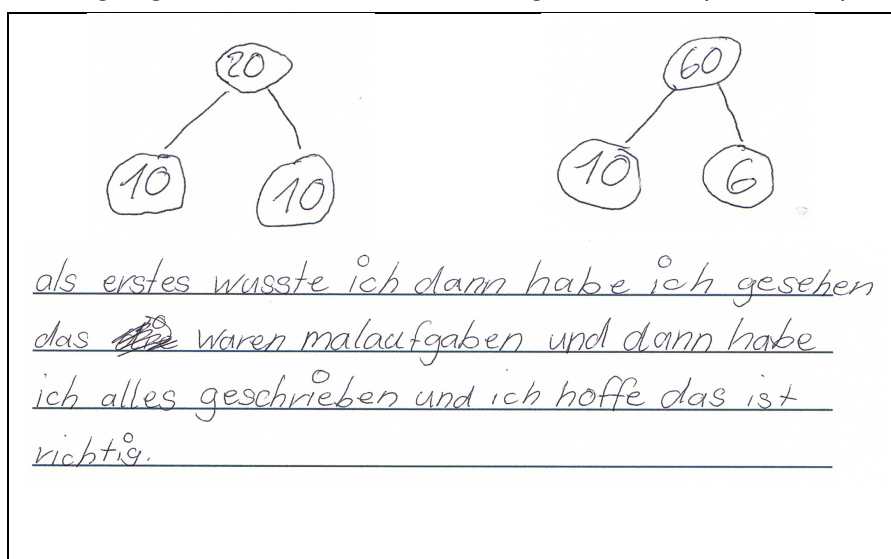 20 60
10 10 10 6
als erstes wusste ich dann habe ich gesehen
das waren malaufgaben und dann habe
ich alles geschrieben und ich hoffe das ist
richtig.